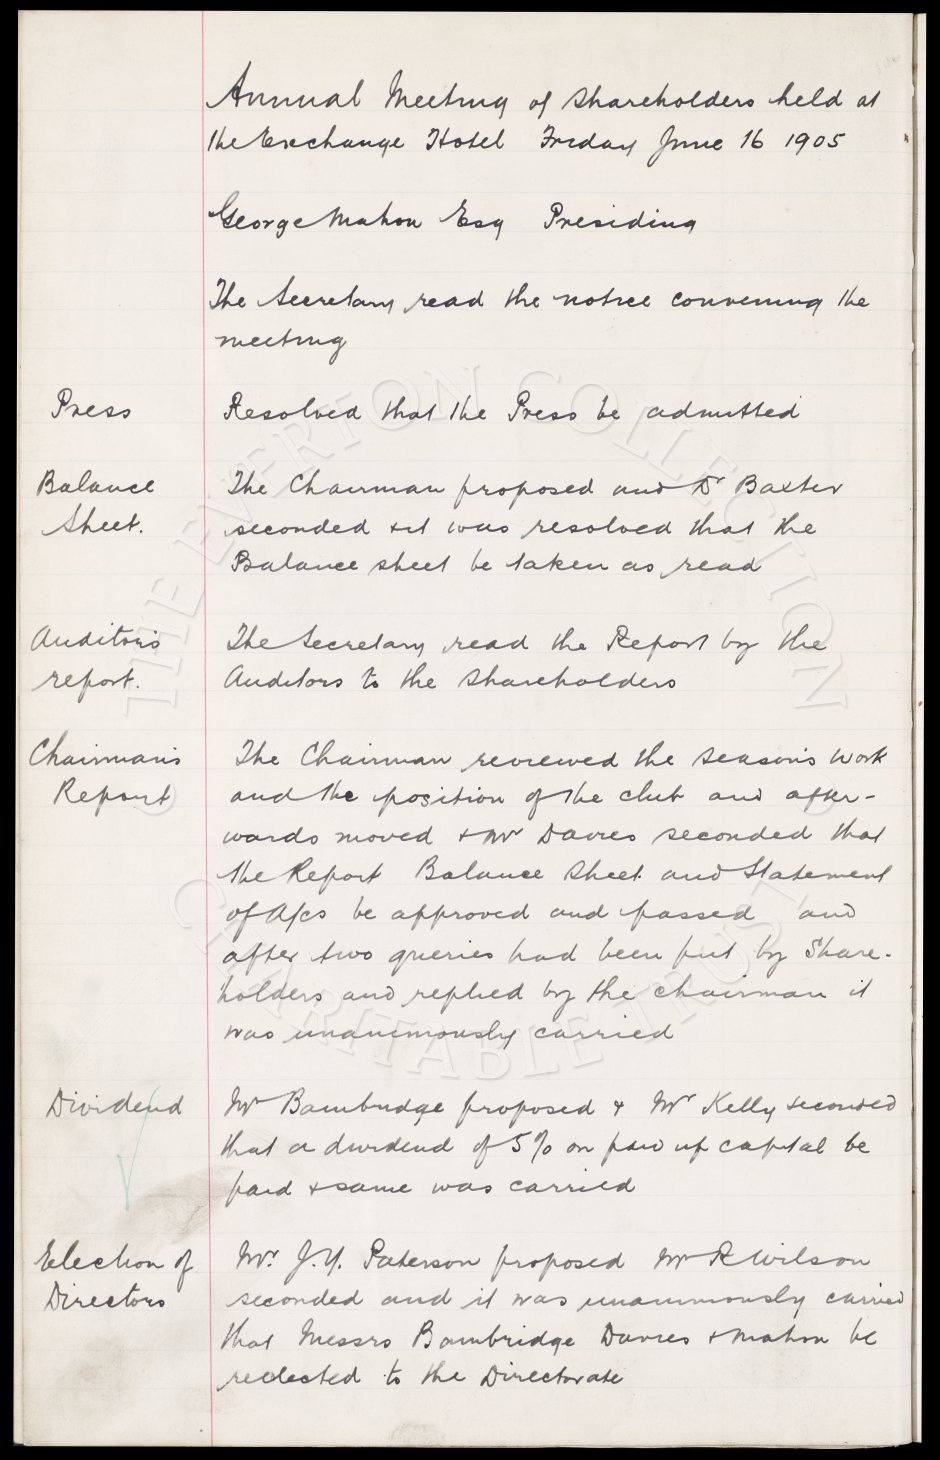 Annual Meeting of Shareholders held at
the Exchange Hotel Friday June 16 1905
George Mahon Esq Presiding
The Secretary read the notice convening the
meeting
Press
Resolved that the Press be admitted
Balance
Sheet.
The Chairman proposed and Dr Baxter
seconded & it was resolved that the
Balance sheet be taken as read
Auditor's
report.
The Secretary read the Report by the
Auditors to the Shareholders
Chairman's
Report
The Chairman reviewed the season's work
and the position of the club and after-
wards moved & Mr Davies seconded that
the Report Balance Sheet and Statement
of A/cs be approved and passed and
after two queries had been put by Share-
holders and replied by the chairman it
was unanimously carried
Dividend
Mr Bainbridge proposed & Mr Kelly seconded
that a dividend of 5% on paid up capital be
paid & same was carried
Election of
Directors
Mr. J.Y. Paterson proposed Mr R Wilson
seconded and it was unanimously carried
that Messrs Bainbridge Davies & Mahon be
reelected to the Directorate
THE EVERTON COLLECTION
CHARITABLE TRUST